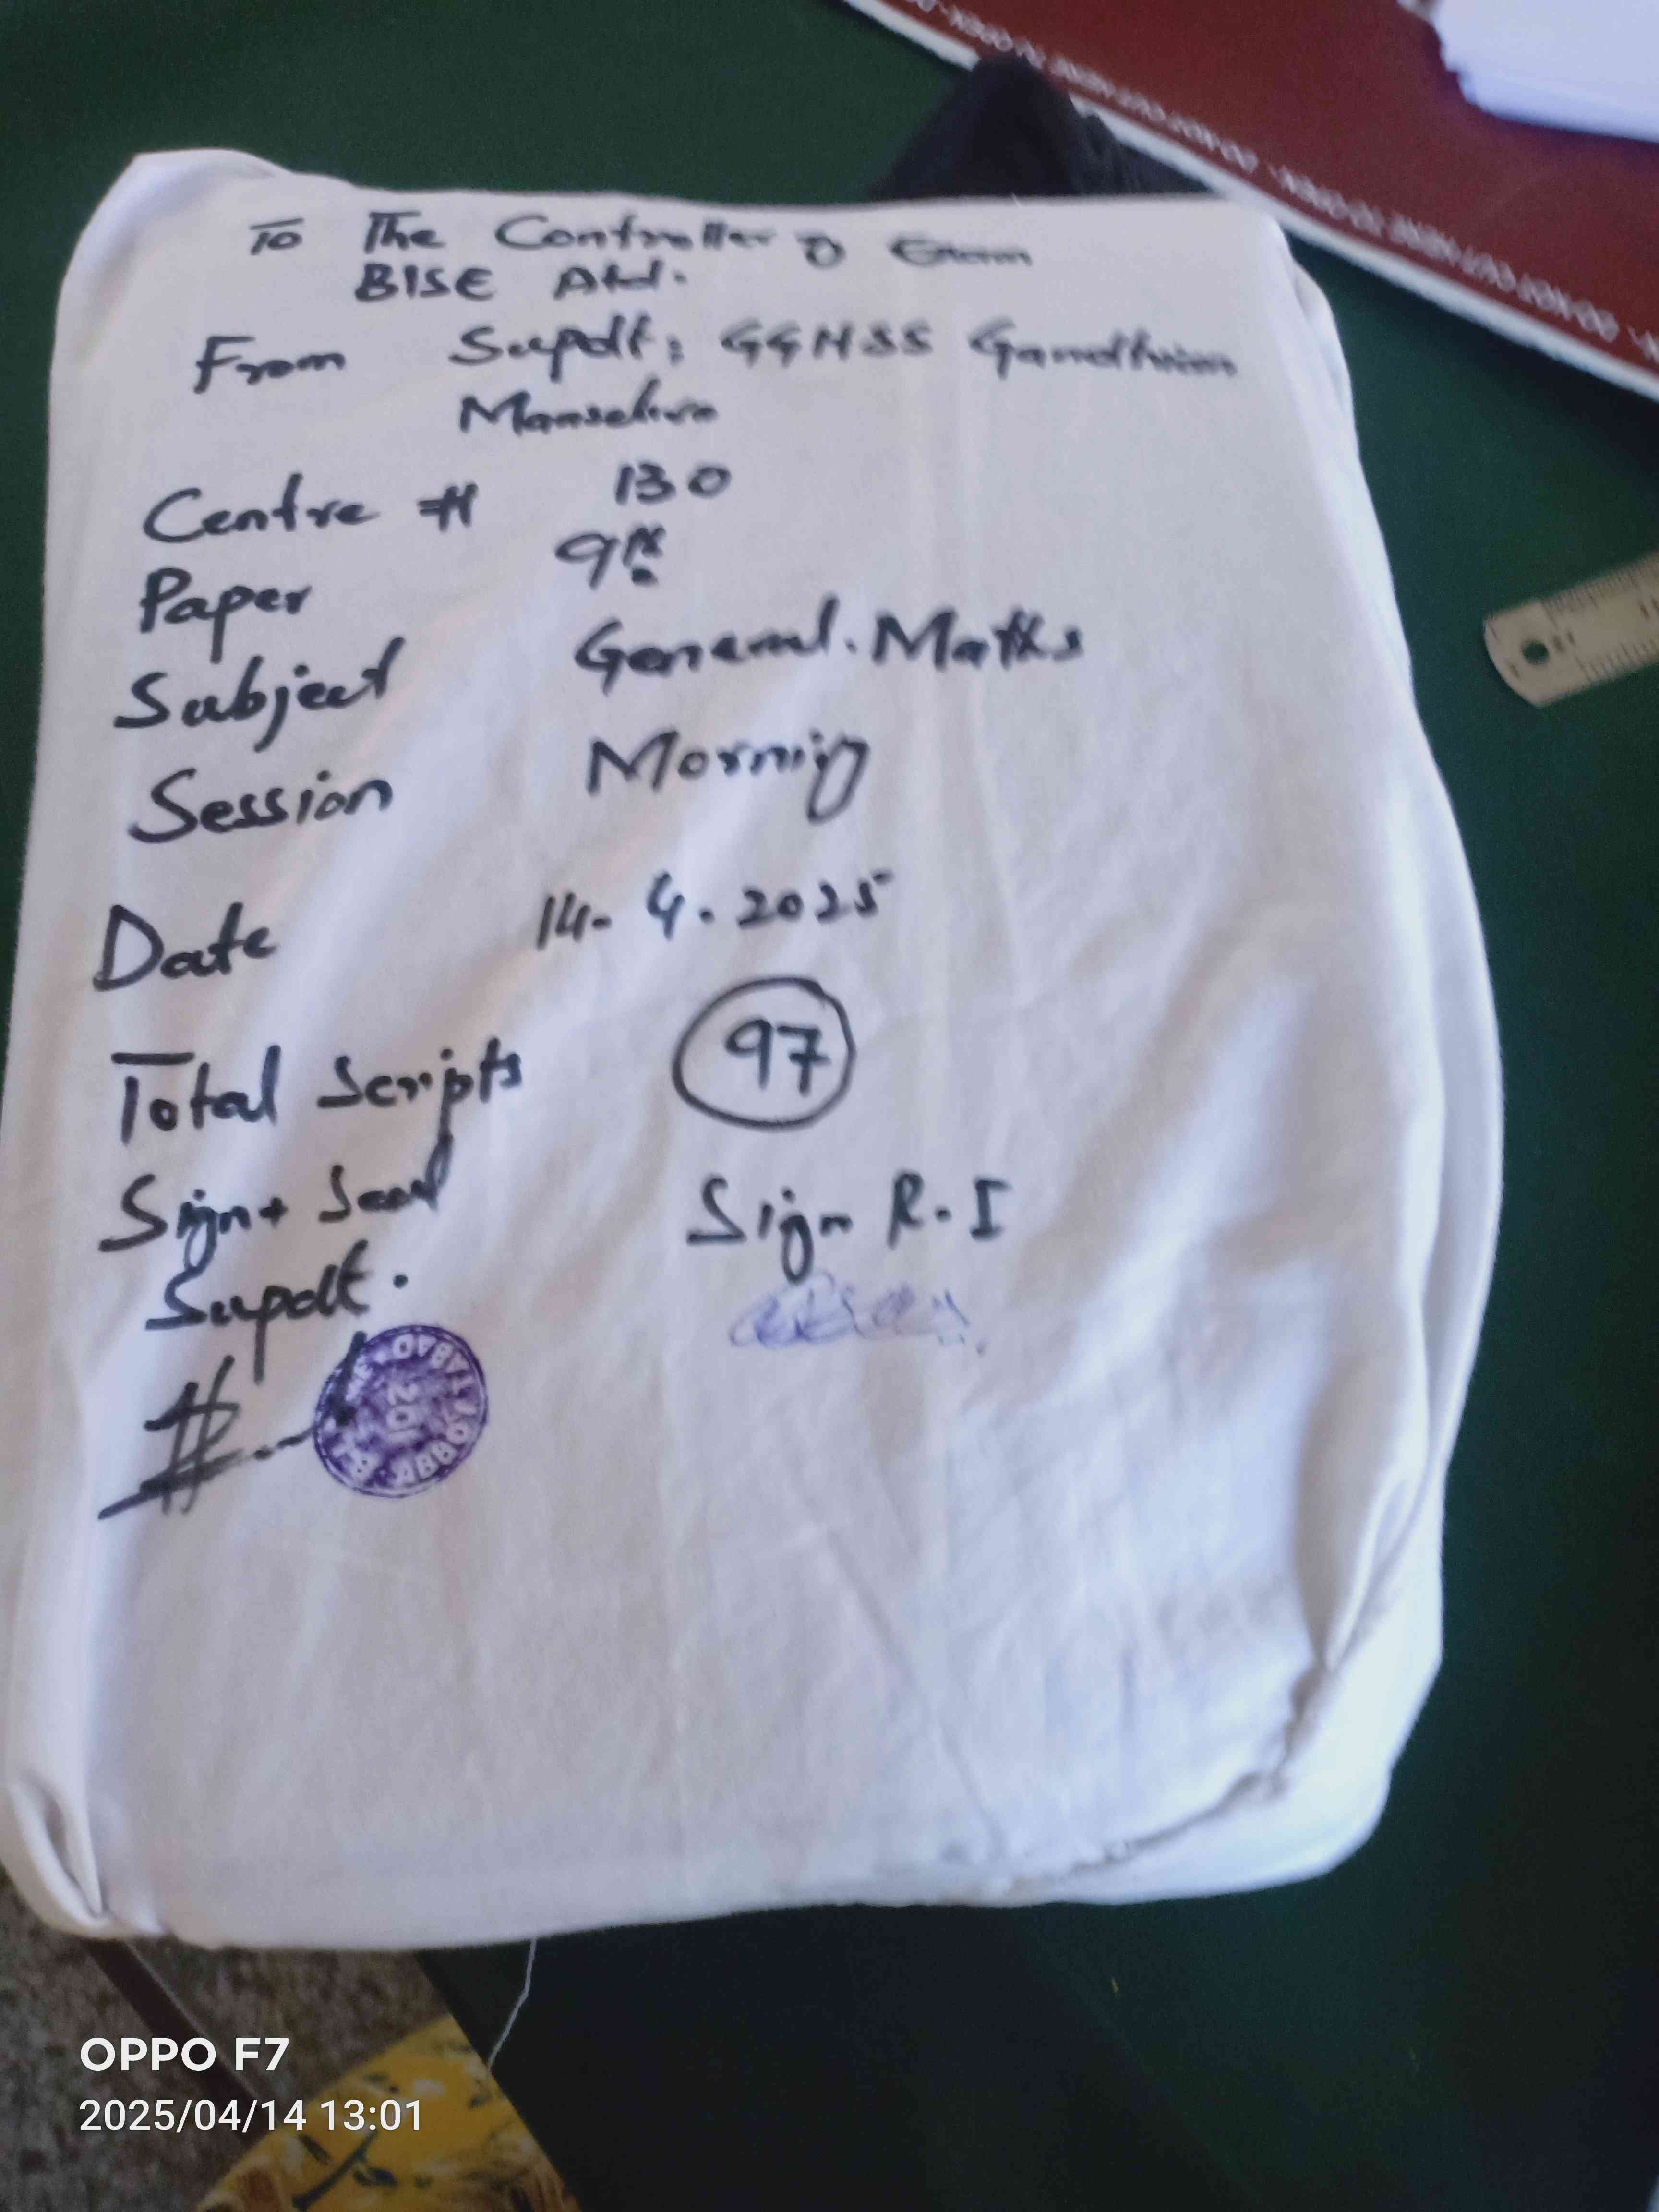 To The Controller of Exam
BISE Atd.
From Supdt: GGHSS Gandhian
Mansehra
Centre # 130
Paper 9th
Subject General. Maths
Session Morning
Date 14. 4. 2025
Total Scripts 97
Sign + Seal Sign R.I
Supdt.
ABBOTTABAD
201
OPPO F7
2025/04/14 13:01